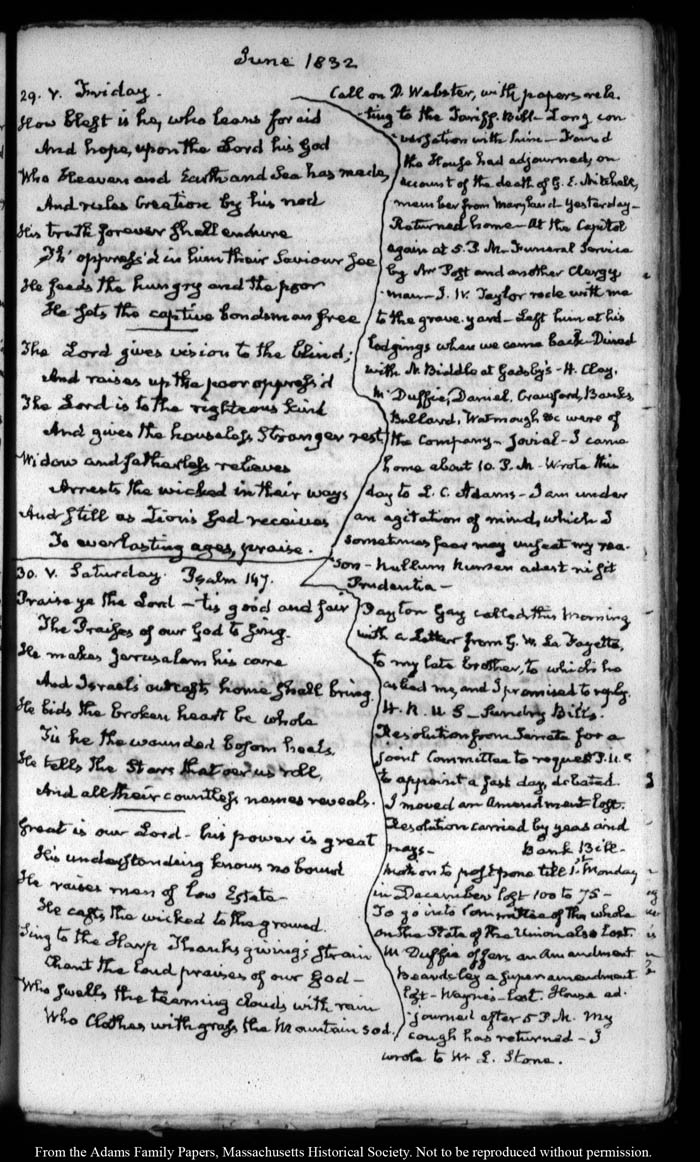 June 1832
29. V. Friday.
How blest is he, who leans for aid
And hope, upon the Lord his God
Who Heaven and Earth and Sea has made,
And rules Creation by his nod
His truth forever shall endure
Th' oppress'd in him their Saviour see
He feeds the hungry and the poor
He sets the captive bondsman free
The Lord gives vision to the blind;
And raises up the poor oppress'd
The Lord is to the righteous kind
And gives the houseless Stranger rest
Widow and fatherless relieves
Arrests the wicked in their ways
And still as Zion's God receives
To everlasting ages, praise.
Call on D. Webster, with papers rela-
ting to the Tariff Bill. Long con
versation with him - Found
the House had adjourned, on
account of the death of G. E. Mitchell,
member from Maryland yesterday -
Returned home - At the Capitol
again at 5. P.M. Funeral Service
by Mr Post and another Clergy
man - J. W. Taylor rode with me
to the grave yard - Left him at his
lodgings when we came back - Dined
with N. Biddle at Gadsby's - H. Clay,
McDuffie, Daniel, Crawford, Banks
Bullard, Watmough &c were of
the Company - Jovial - I came
home about 10. P.M. - Wrote this
day to L. C. Adams - I am under
an agitation of mind, which I
sometimes fear may unseat my rea-
son - Nullum numen adest ni sit
Prudentia -
30. V. Saturday. Psalm 147.
Praise ye the Lord - 'tis good and fair
The Praises of our God to sing.
He makes Jerusalem his care
And Israel's outcasts home shall bring.
He bids the broken heart be whole
Tis he the wounded bosom heals,
He tells the Stars that o'er us roll,
And all their countless names reveals.
Great is our Lord - his power is great
His understanding knows no bound
He raises men of low Estate
He casts the wicked to the ground.
Sing to the Harp Thanksgiving's strain
Chant the loud praises of our God -
Who swells the teaming clouds with rain
Who Clothes with grass the Mountain sod.
Payton Gay called this Morning
with a Letter from G. W. La Fayette,
to my late brother, to which he
asked me, and I promised to reply.
H. R. U S - Sundry Bills.
Resolution from Senate for a
joint Committee to request P. U. S
to appoint a fast day, debated.
I moved an Amendment lost.
Resolution carried by yeas and
nays - Bank Bill -
Motion to postpone till 1st Monday
in December lost 100 to 75 -
To go into Committee of the whole
on the State of the Union also lost.
McDuffie offers an Amendment
Beardsley a superamendment
lost - Wayne's - lost. House ad-
journed after 5 P.M. My
cough has returned - I
wrote to W. L. Stone.
From the Adams Family Papers, Massachusetts Historical Society. Not to be reproduced without permission.